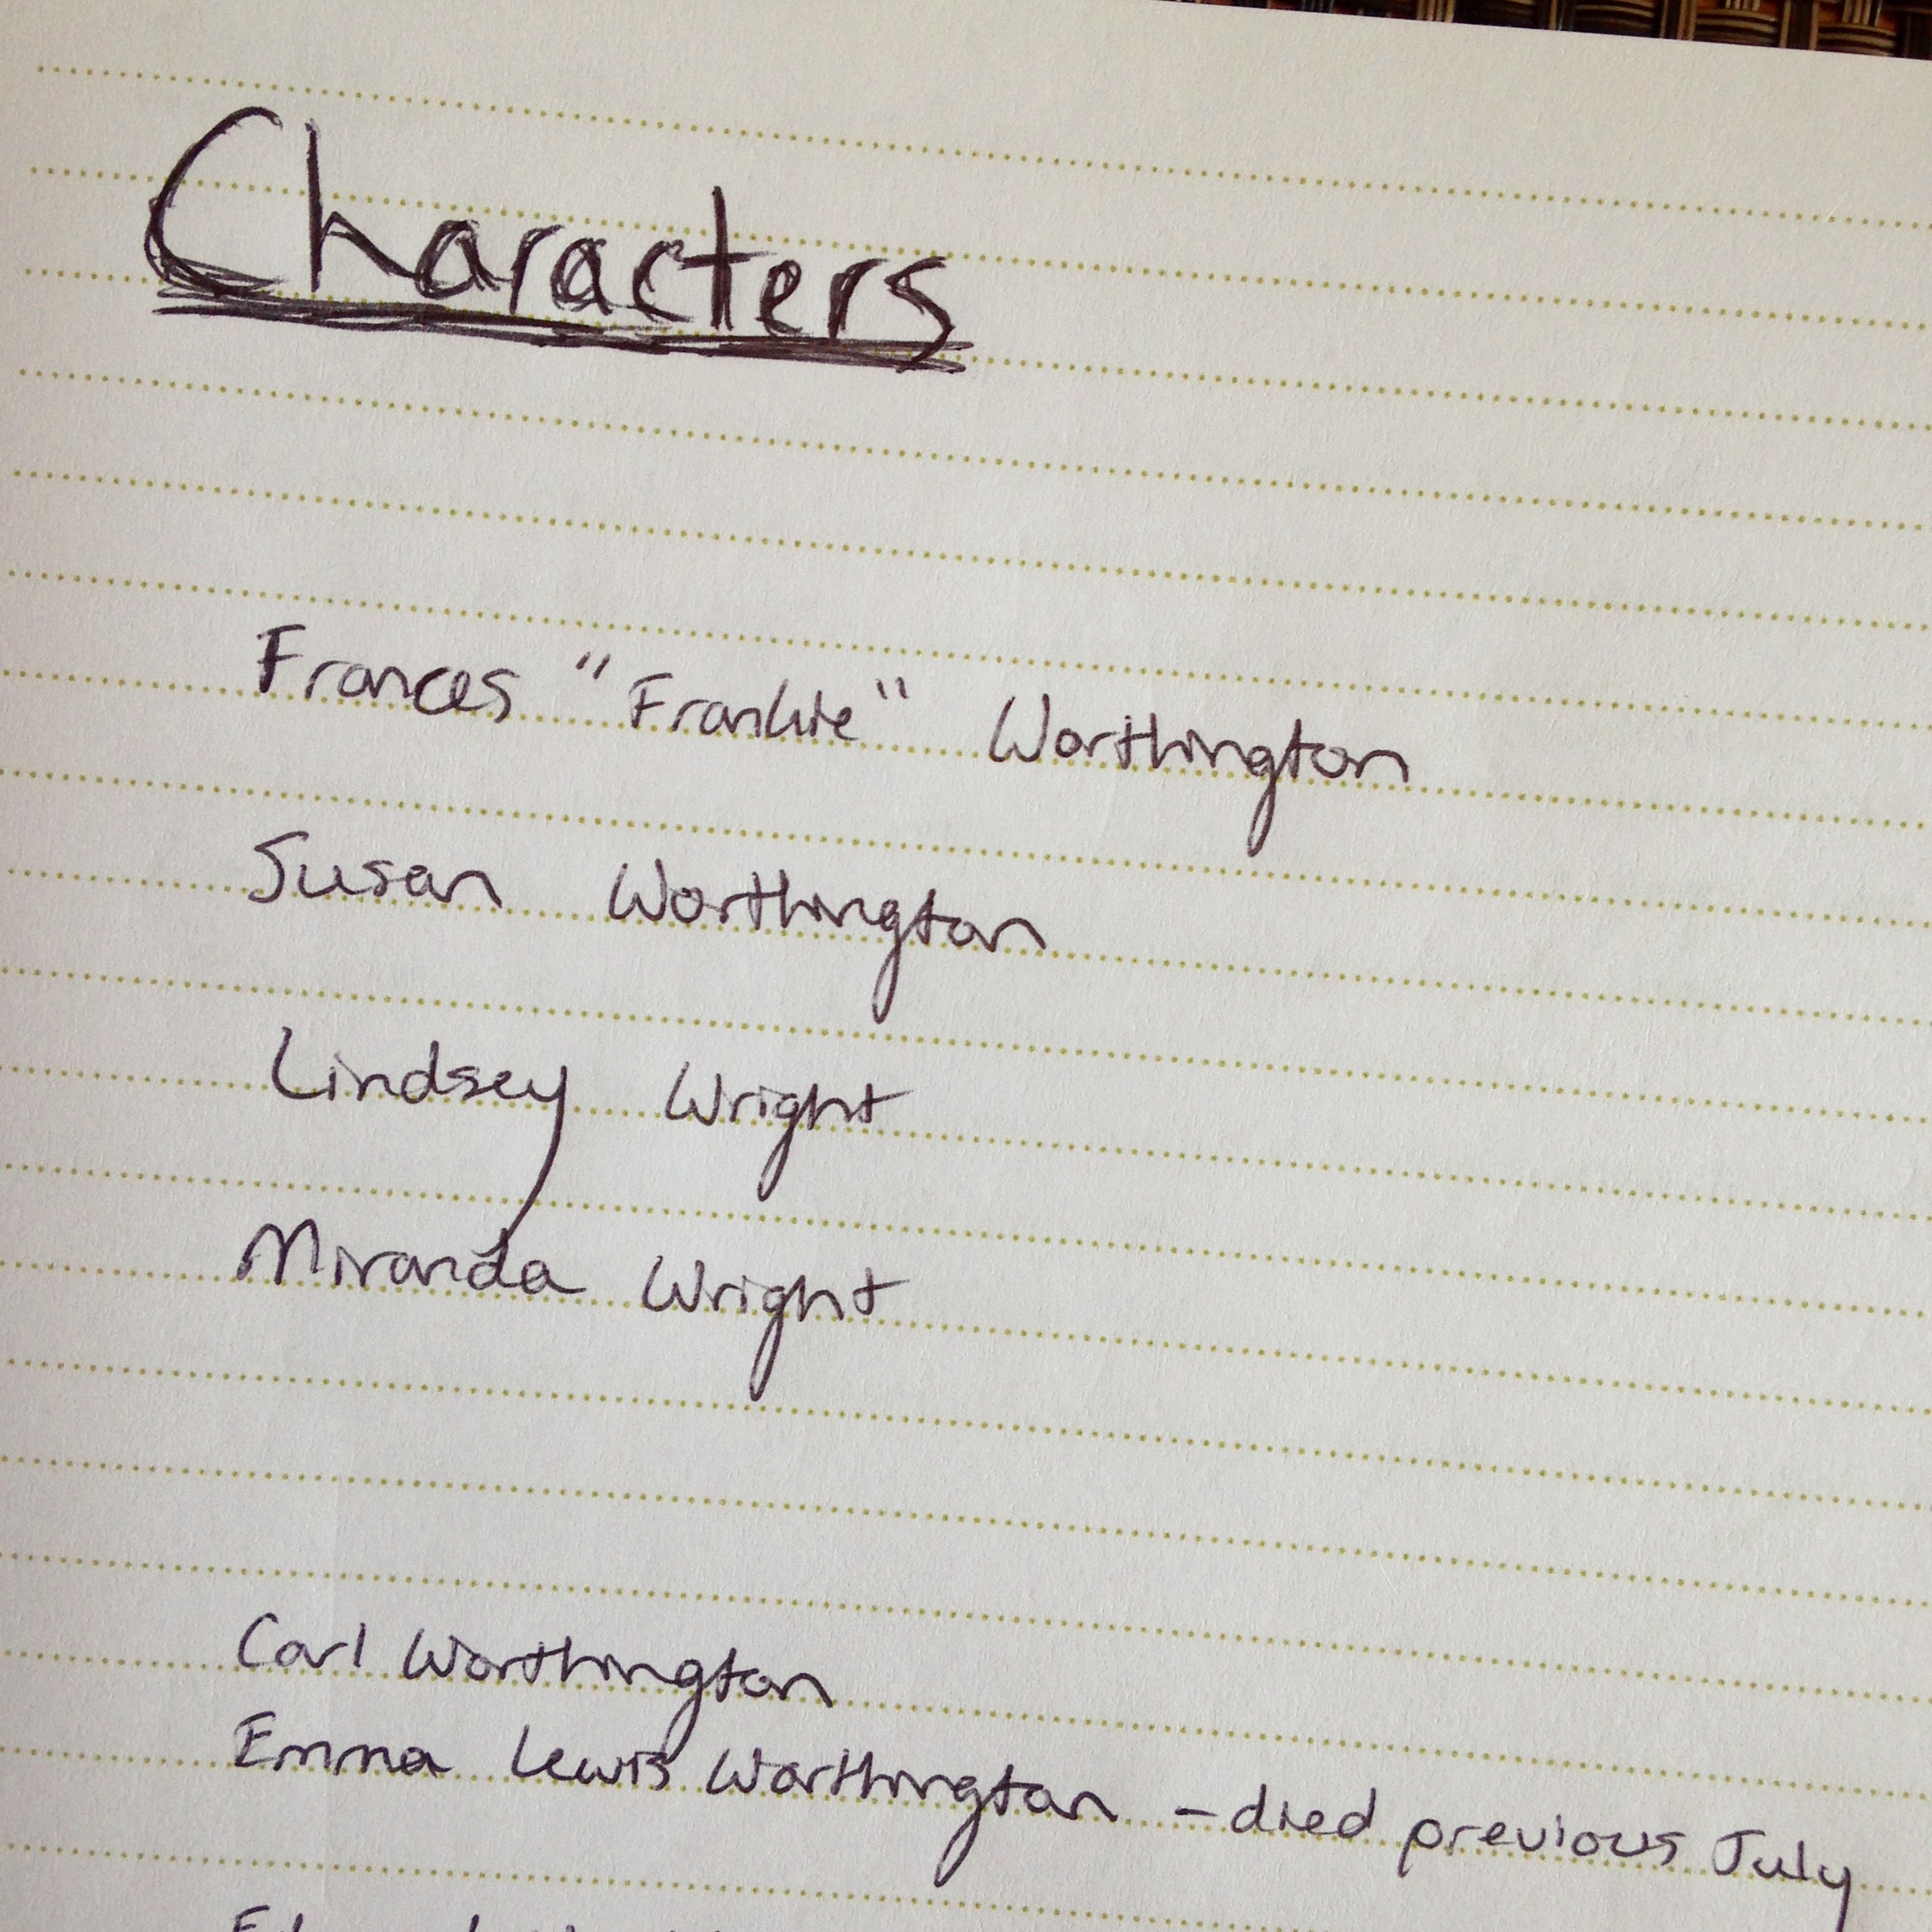 Characters
Frances "Frankie" Worthington
Susan Worthington
Lindsey Wright
Miranda Wright
Carl Worthington
Emma Lewis Worthington – died previous July